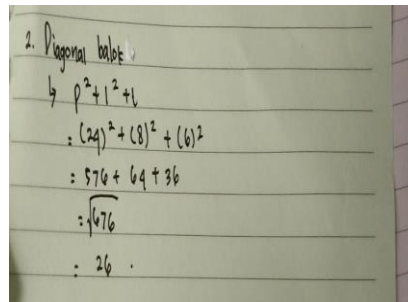 2. Diagonal balok
↳ p²+l²+t
: (24)² + (8)² + (6)²
: 576 + 64 + 36
: √676
: 26 .